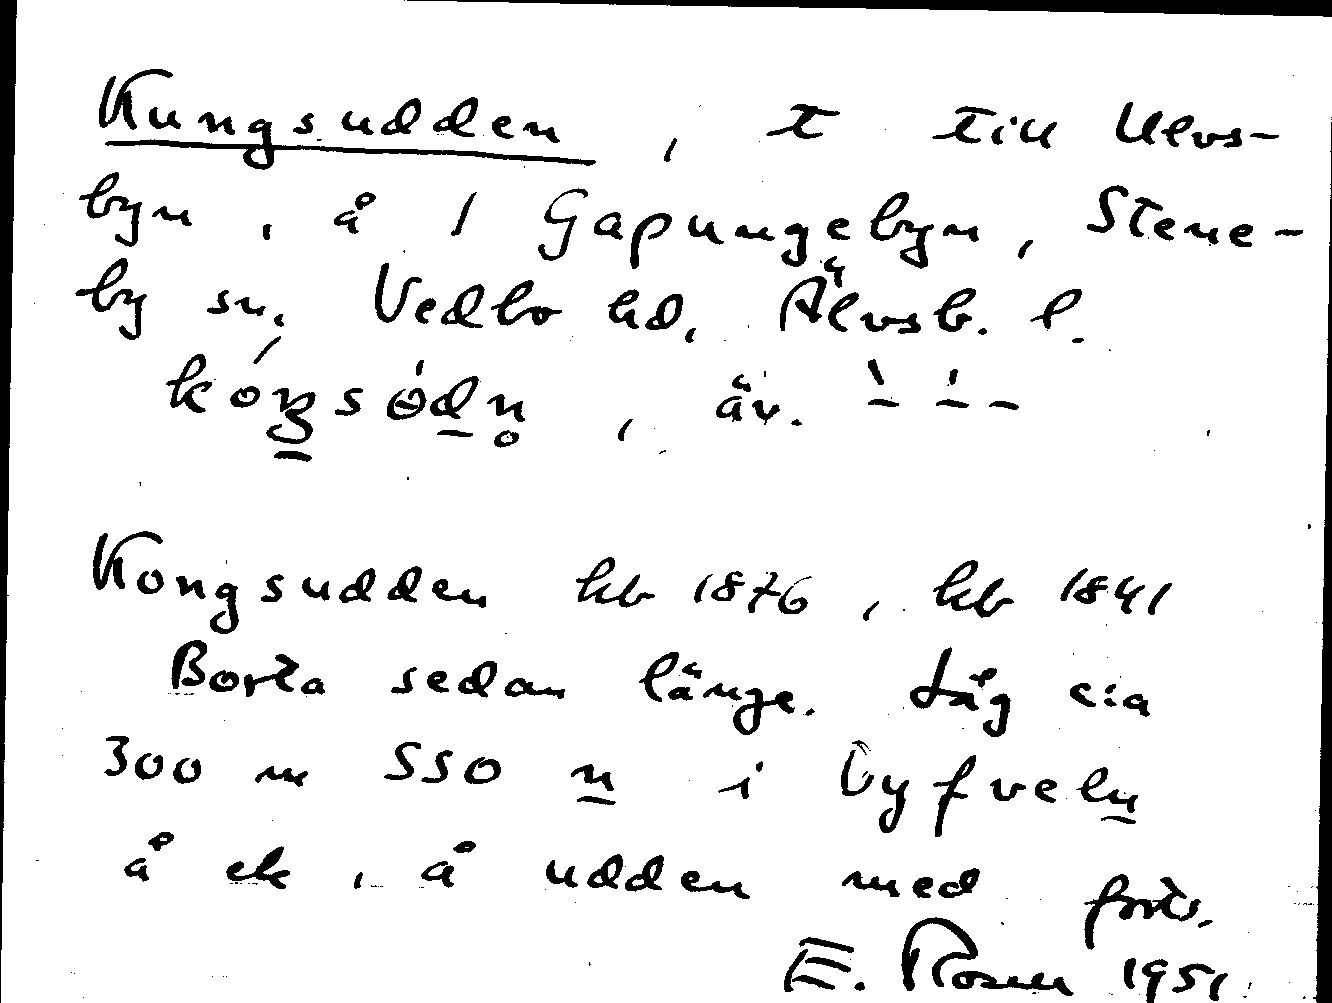 Kungsudden, t till Ulvs-
byn, å 1 Gapungebyn, Stene-
by sn, Vedbo hd, Älvsb. l.
äv.
Kongsudden hb 1876, hb 1841
Borta sedan länge. Låg c:a
300 m SSO n i Byfveln
å ek, å udden med forts.
E. Rosell 1951